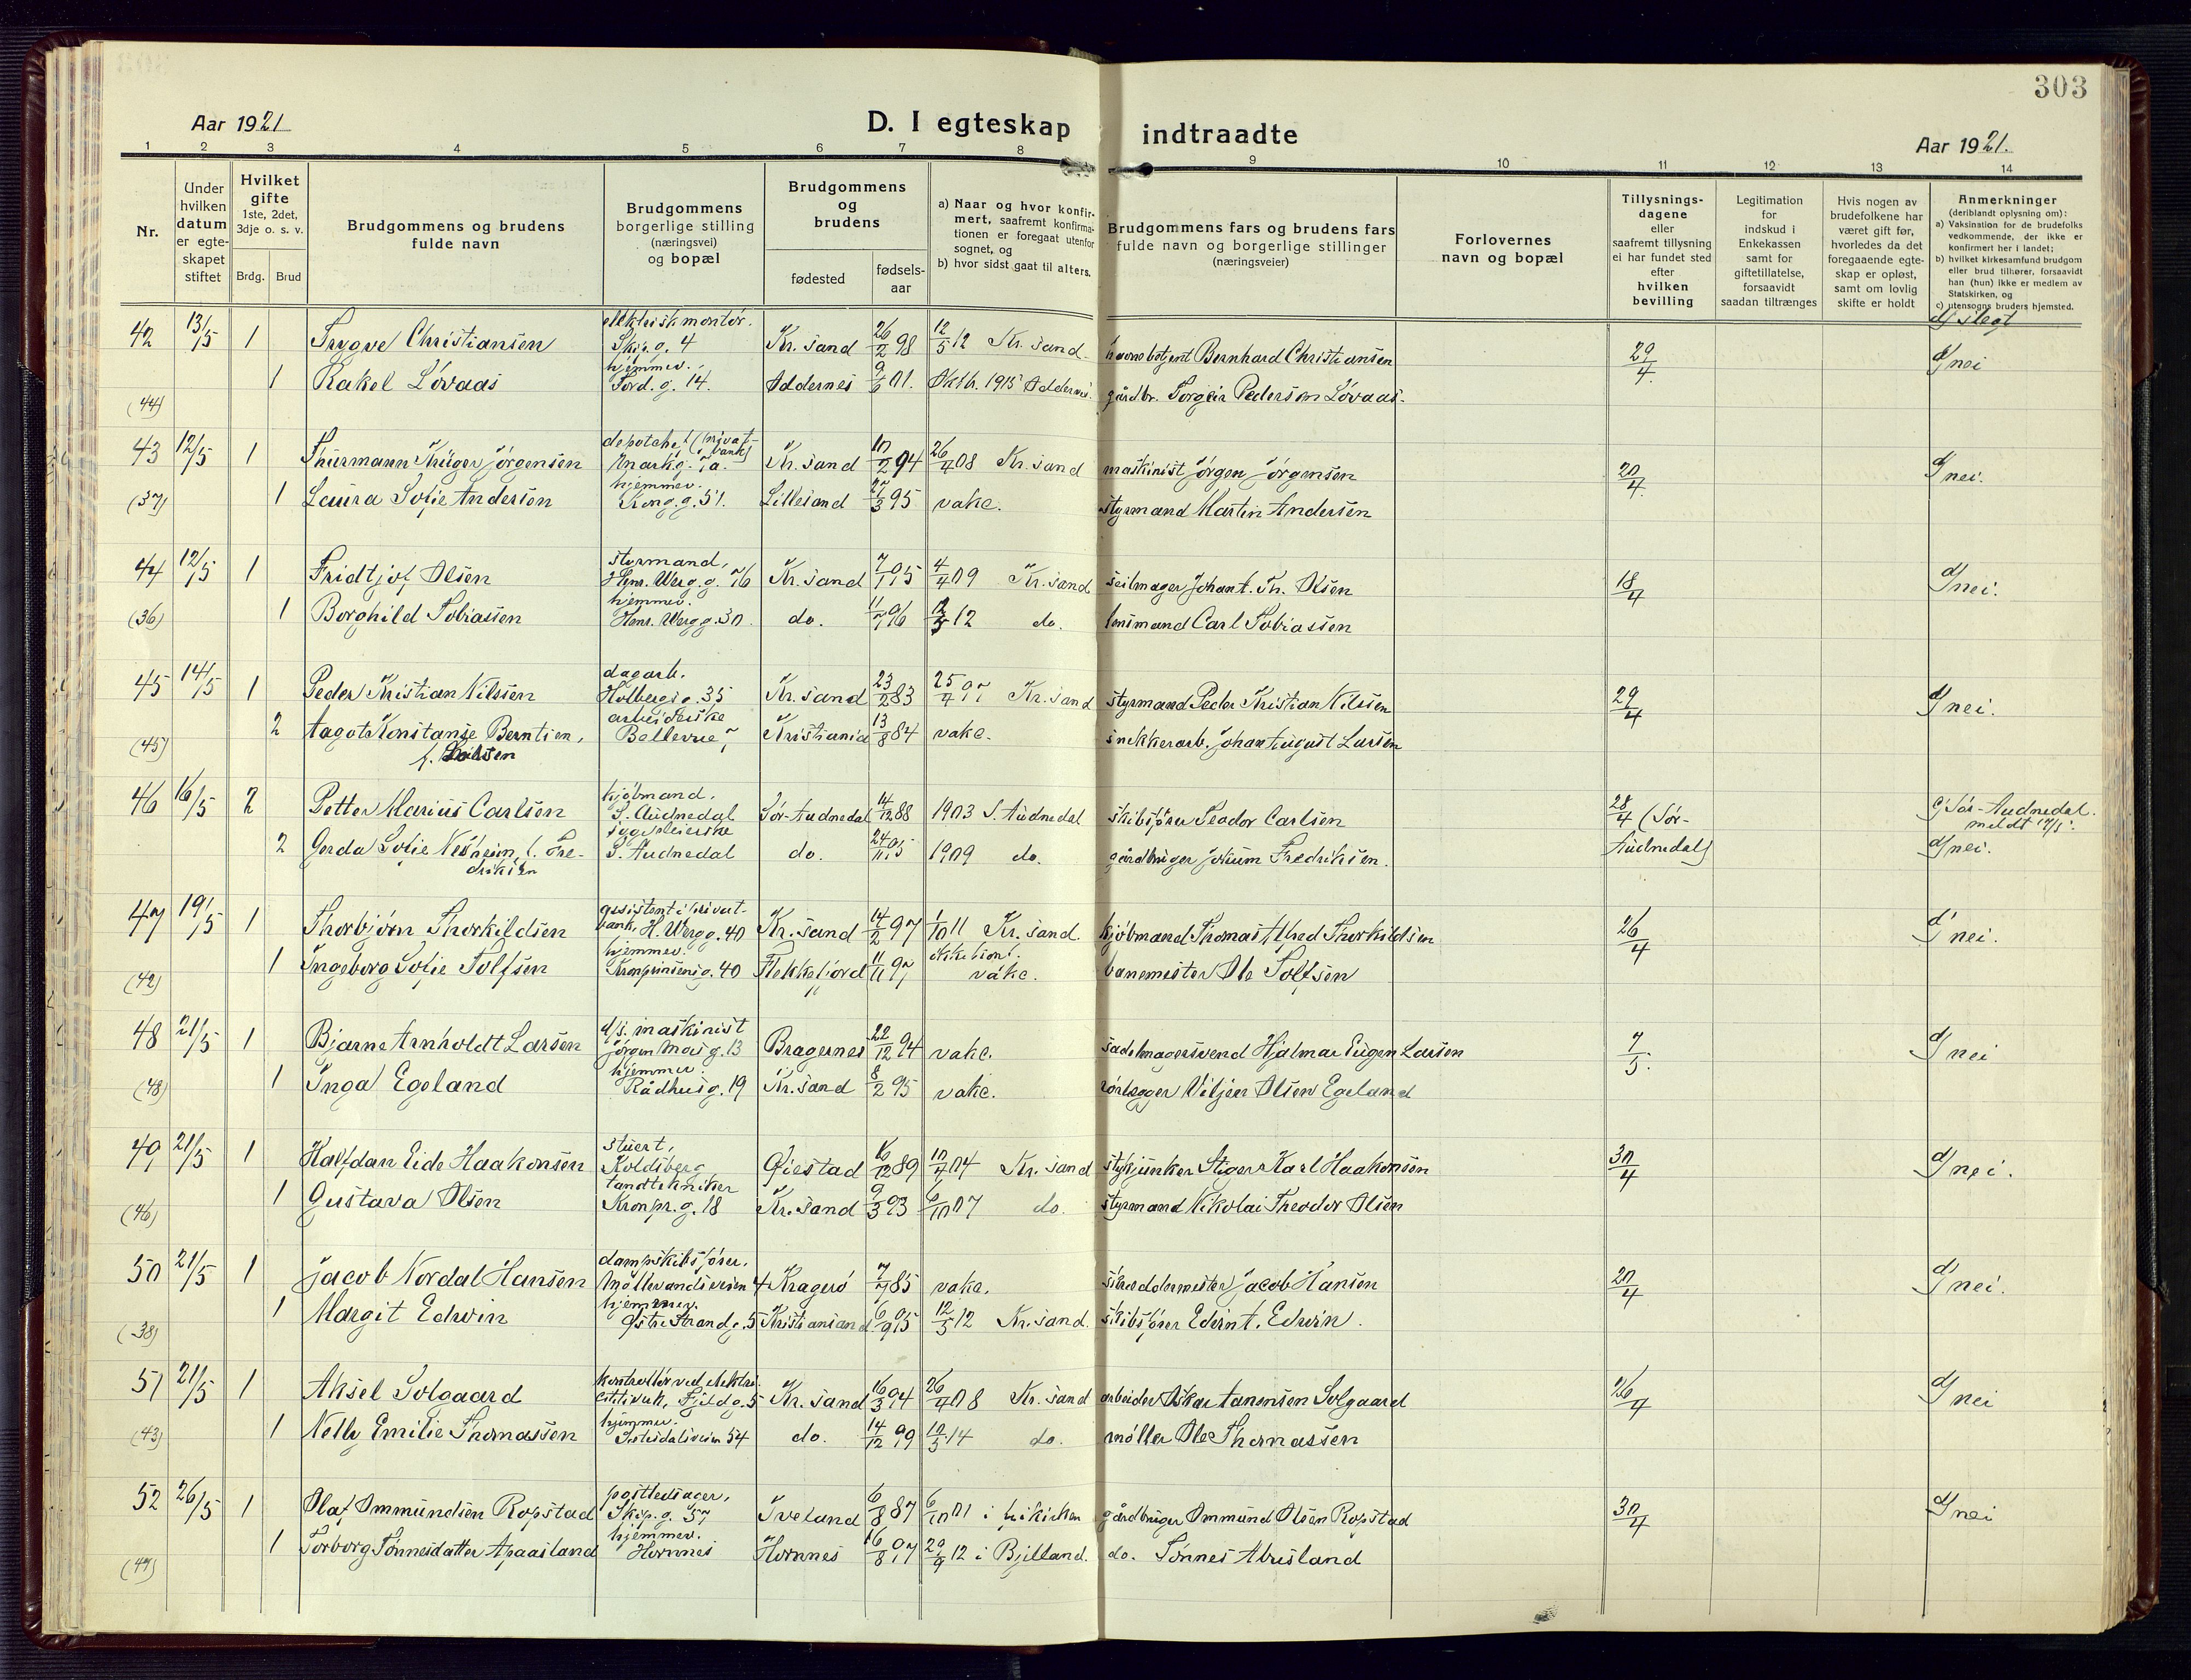 303
Aar 1921
D. I egteskap indtraadte
Aar 1921.
1 2 3 4 5 6 7 8 9 10 11 12 13 14
Nr.
Under hvilken datum er egte-skapet stiftet
Hvilket gifte 1ste, 2det, 3dje o. s. v.
Brdg. Brud
Brudgommens og brudens fulde navn
Brudgommens borgerlige stilling (næringsvei) og bopæl
Brudgommens og brudens
fødested fødsels-aar
a) Naar og hvor konfir-mert, saafremt konfirma-tionen er foregaat utenfor sognet, og
b) hvor sidst gaat til alters.
Brudgommens fars og brudens fars fulde navn og borgerlige stillinger (næringsveier)
Forlovernes navn og bopæl
Tillysnings-dagene eller saafremt tillysning ei har fundet sted efter hvilken bevilling
Legitimation for indskud i Enkekassen samt for giftetillatelse, forsaavidt saadan tiltrænges
Hvis nogen av brudefolkene har været gift før, hvorledes da det foregaaende egte-skap er opløst, samt om lovlig skifte er holdt
Anmerkninger (deriblandt oplysning om):
a) Vaksination for de brudefolks vedkommende, der ikke er konfirmert her i landet;
b) hvilket kirkesamfund brudgom eller brud tilhører, forsaavidt han (hun) ikke er medlem av Statskirken, og
c) utensogns bruders hjemsted.
d) slegt
42 13/5 1 Trygve Christiansen elektrisk montør. Skip.g. 4 Kr.sand 26/2 98 12/5 12 Kr.sand. havnebetjent Bernhard Christiansen 29/4. d/ nei
1 Rakel Løvaas hjemmev. Tord.g. 14. Oddernes 9/6 01. Oktbr. 1915 Oddernes. gårdbr. Torgeir Pedersen Løvaas.
(44)
43 12/5 1 Thürmann Krüger Jørgensen Mark.g. 7a. Kr.sand 10/2 94 26/4 08 Kr.sand maskinist Jørgen Jørgensen 20/4. d/ nei.
(37) 1 Laura Sofie Andersen hjemmev. Kong.g. 51. Lillesand 27/3 95 vakc. styrmand Martin Andersen
44 12/5 1 Fridtjof Olsen styrmand, Henr. Werg.g. 76 Kr.sand 7/1 95 4/4 09 Kr.sand seilmager Johan t. Th. Olsen 18/4 d/ nei.
(36) 1 Borghild Tobiassen hjemmev. Henr. Werg.g. 30 do. 11/7 96 12/5 12 do. lensmand Carl Tobiassen
45 14/5 1 Peder Kristian Nilssen dagarb. Holbergs g. 35 Kr.sand 23/2 83 25/4 97 Kr.sand styrmand Peder Kristian Nilssen 29/4 d/ nei.
(45) 2 Aagot Konstanse Berntsen, f. Larsen arbeiderske Bellevue 7 Kristiania 13/8 84 vakc. snekkerarb. Johan August Larsen
46 16/5 2 Petter Marius Carlsen kjøbmand. S. Audnedal Sør-Audnedal 14/12 88 1903 S. Audnedal skibsfører Teodor Carlsen 28/4 (Sør-Audnedal) c/ Sør-Audnedal. meldt 17/5.
2 Gerda Sofie Nesheim, f. Fredriksen sygepleierske S. Audnedal do. 24/11 95 1909 do. gårdbruger Jokum Fredriksen. d/ nei.
47 19/5 1 Thorbjørn Thorkildsen assistent i privatbank, H. Werg.g. 40 Kr.sand 14/2 97 1/10 11 Kr.sand. kjøbmand Thomas Alfred Thorkildsen 26/4 d/ nei.
(42) 1 Ingeborg Sofie Tolfsen hjemmev. Kronprinsens g. 40 Flekkefjord 11/11 97 vakc. banemester Ole Tolfsen
48 21/5 1 Bjarne Arnholdt Larsen d/s. maskinist Jørgen Moes g. 13 Bragernes 22/12 94 vakc. sadelmagersvend Hjalmar Eugen Larsen 7/5. d/ nei
(48) 1 Inga Egeland hjemmev Rådhus g. 19 Kr.sand 8/2 95 vakc. rørlægger Vitjær Olsen Egeland
49 21/5 1 Halfdan Eide Haakonsen stuert, Koldsberg Øiestad 6/12 89 10/4 04 Kr.sand stykjunker Stiger Karl Haakonsen 30/4 d/ nei.
(46) 1 Gustava Olsen tandtekniker Kronpr.g. 18 Kr.sand 9/3 93 6/10 07 do. styrmand Nikolai Theodor Olsen
50 21/5 1 Jacob Nordal Hansen dampskibsfører. Møllevandsveien 4 Kragerø 7/7 85 vakc. Jacob Hansen 20/4 d/ nei.
(38) 1 Margit Edwin hjemmev. Østre Strandg. 5 Kristiansand 6/9 95 12/5 12 Kr.sand. skibsfører Edwin t. Edwin.
51 21/5 1 Aksel Solgaard kontrollør ved elektricitetsvrk, Fjeldg. 5 Kr.sand 16/3 94 26/4 08 Kr.sand arbeider Oskar Aanensen Solgaard 26/4 d/ nei
(43) 1 Nelly Emilie Thomassen hjemmev. Setesdalsveien 54 do. 14/12 99 10/5 14 do. møller Ole Thomassen
52 26/5 1 Olaf Ommundsen Ropstad postledsager, Skip.g. 37 Iveland 6/8 87 6/10 01 i frikirken gårdbruger Ommund Olsen Ropstad 30/4 d/ nei
(47) 1 Torborg Tønnesdatter Apaasland hjemmev. Hornnes Hornnes 16/8 97 29/9 12 i Bjelland. do. Tønnes Abusland